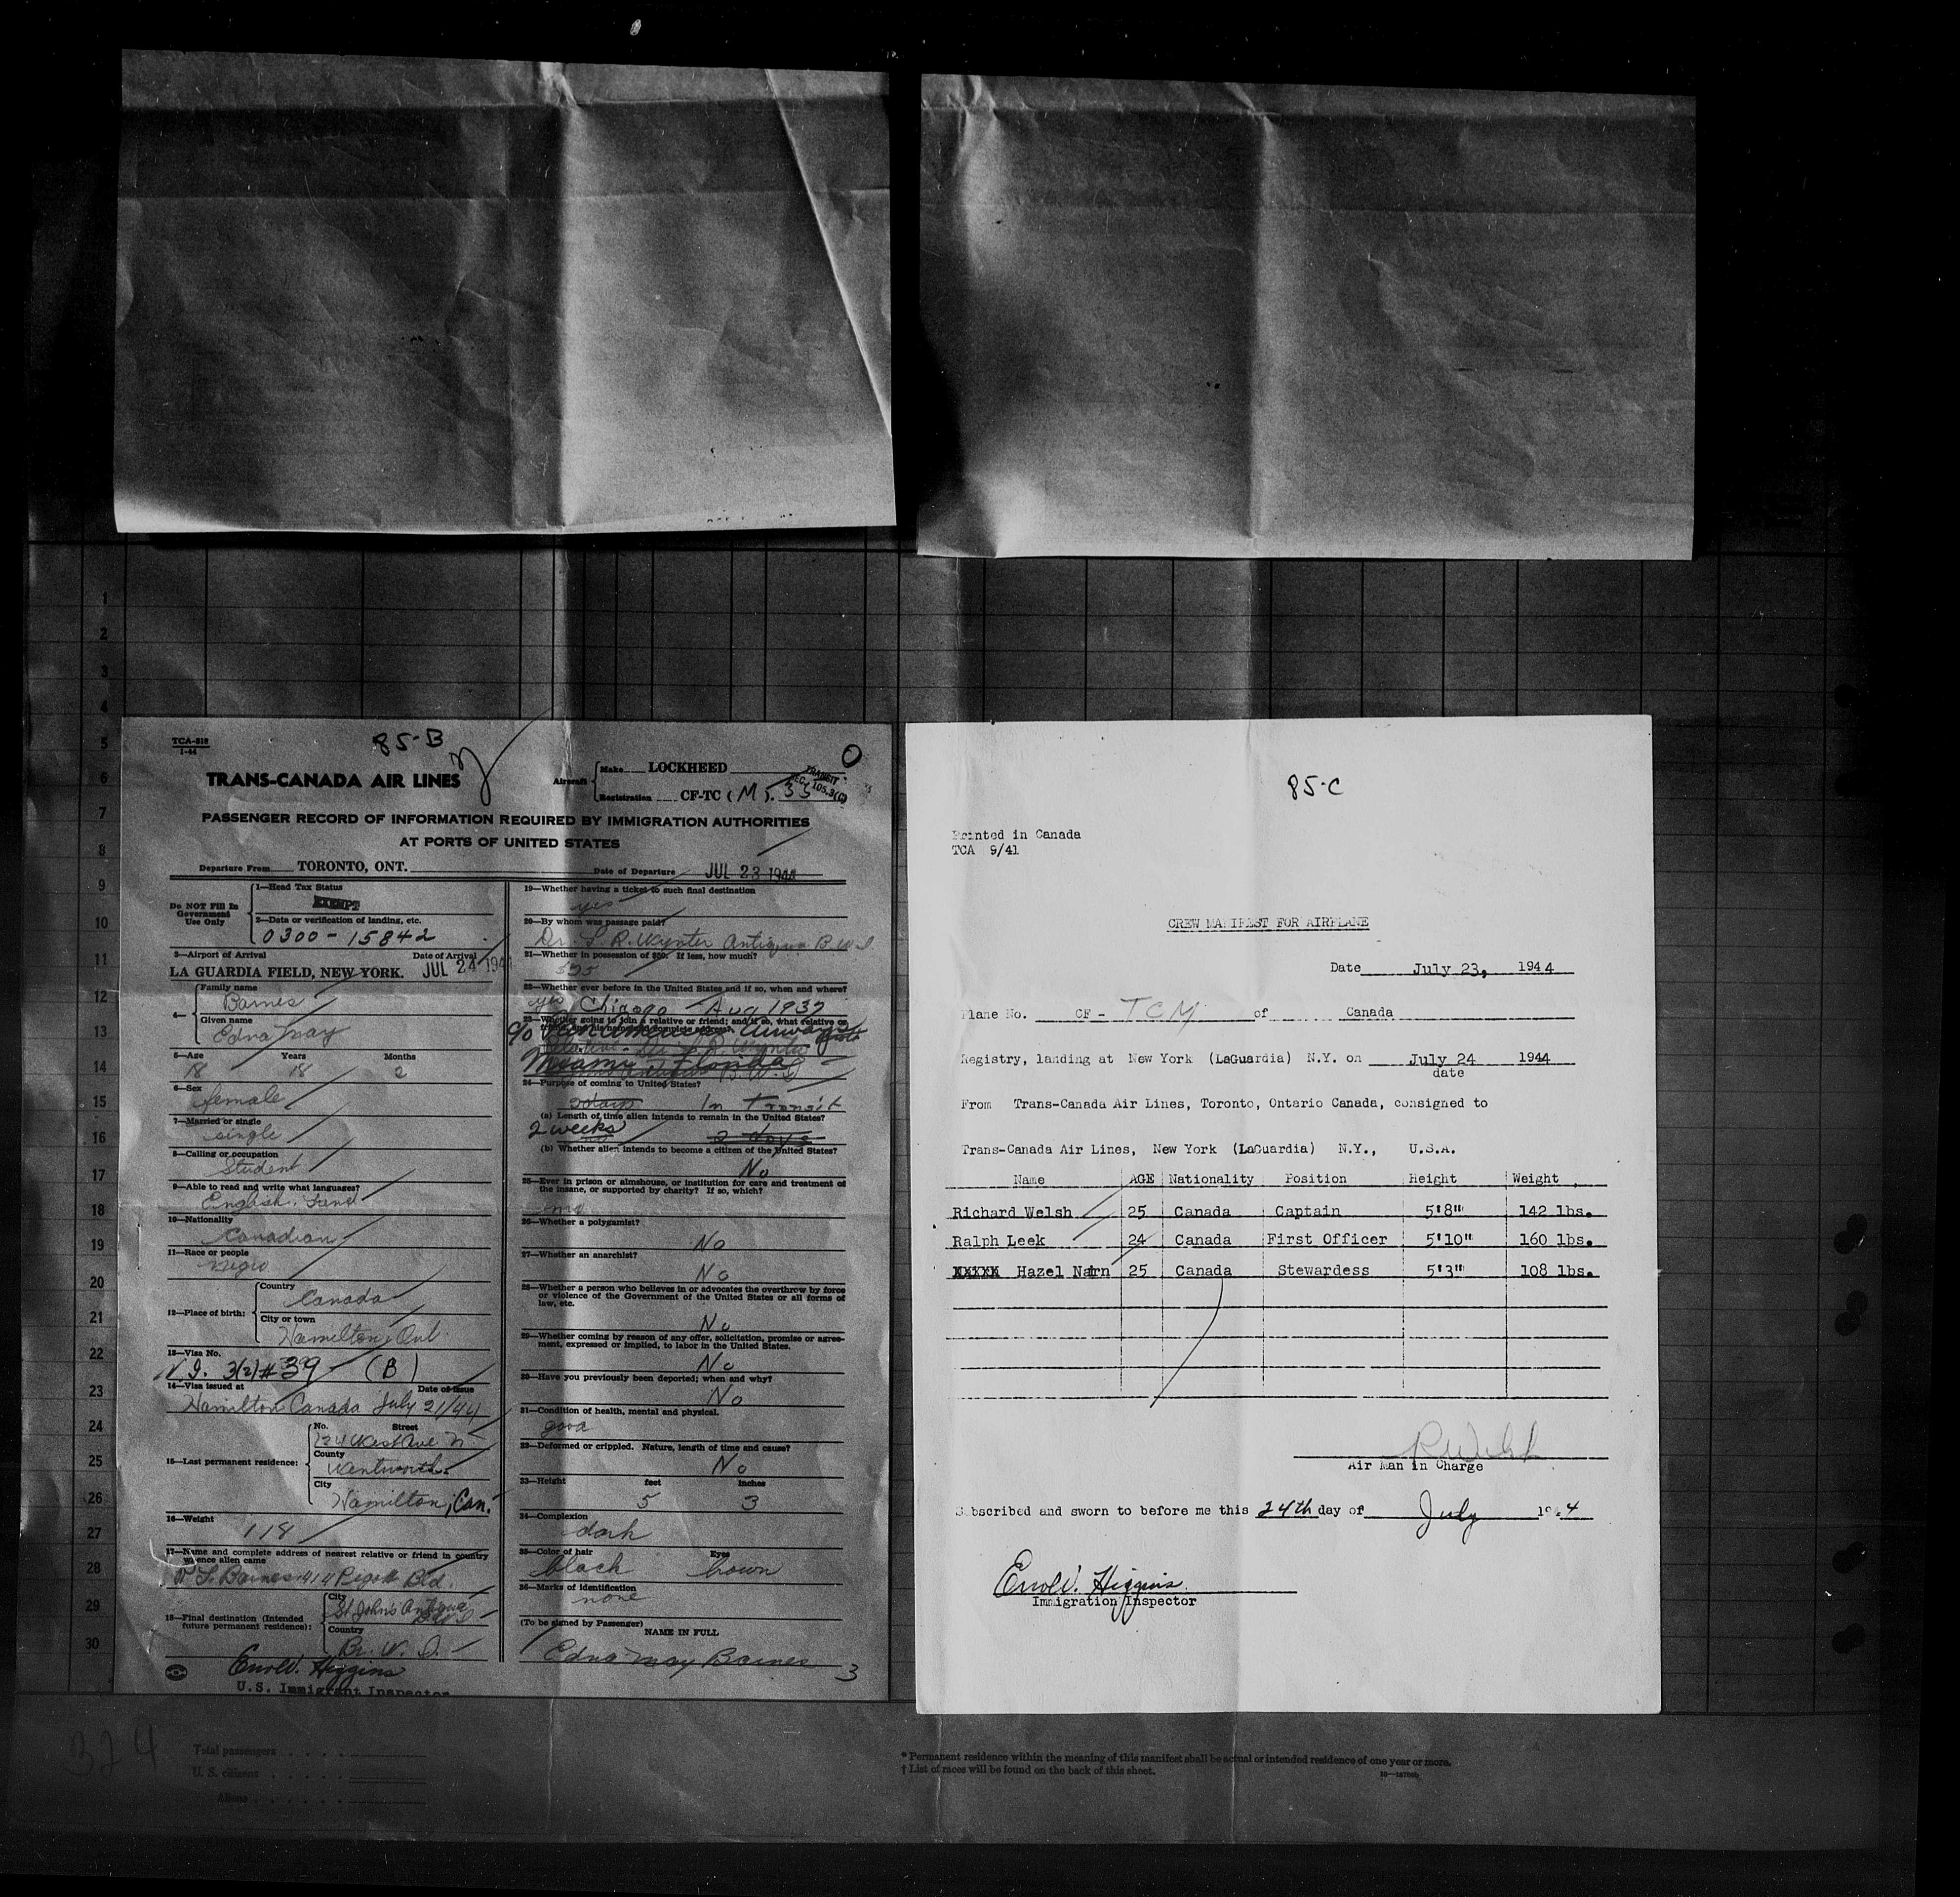 1
2
3
4
5
6
7
8
9
10
11
12
13
14
15
16
17
18
19
20
21
22
23
24
25
26
27
28
29
30
TCA-318
1-44
85-B
O
TRANS-CANADA AIR LINES
Aircraft
Make LOCKHEED
Registration CF-TC (M).
TRANSIT
SEC. 105.3(C)
PASSENGER RECORD OF INFORMATION REQUIRED BY IMMIGRATION AUTHORITIES
AT PORTS OF UNITED STATES
Departure From TORONTO, ONT.
Date of Departure JUL 23 1944
Do NOT Fill In
Government
Use Only
1—Head Tax Status
EXEMPT
2—Data or verification of landing, etc.
0300-15842
3—Airport of Arrival Date of Arrival
LA GUARDIA FIELD, NEW YORK. JUL 24 1944
4—
Family name
Barnes
Given name
Edna May
5—Age Years Months
18 18 2
6—Sex
female
7—Married or single
single
8—Calling or occupation
Student
9—Able to read and write what languages?
English
10—Nationality
Canadian
11—Race or people
negro
12—Place of birth:
Country
Canada
City or town
Hamilton, Ont.
13—Visa No.
V.I. 3(2)#39 (B)
14—Visa issued at Date of issue
Hamilton Canada July 21/44
15—Last permanent residence:
No. Street
West Ave N
County
Wentworth
City
Hamilton, Can.
16—Weight
118
17—Name and complete address of nearest relative or friend in country
whence alien came
Barnes 414 Pigott Bld.
18—Final destination (Intended
future permanent residence):
City
St John's Antigua
Country
Br. W. I.
Errol V. Higgins
U.S. Immigrant Inspector
19—Whether having a ticket to such final destination
yes
20—By whom was passage paid?
Dr. L. R. Wynter Antigua B.W.I.
21—Whether in possession of $50. If less, how much?
22—Whether ever before in the United States and if so, when and where?
yes Chicago Aug 1937
23—Whether going to join a relative or friend; and if so, what relative or
friend, and his name and complete address.
c/o Pan American Airways
Miami, Florida
24—Purpose of coming to United States?
2 days In transit
(a) Length of time alien intends to remain in the United States?
2 weeks 2 days
(b) Whether alien intends to become a citizen of the United States?
No
25—Ever in prison or almshouse, or institution for care and treatment of
the insane, or supported by charity? If so, which?
no
26—Whether a polygamist?
No
27—Whether an anarchist?
No
28—Whether a person who believes in or advocates the overthrow by force
or violence of the Government of the United States or all forms of
law, etc.
No
29—Whether coming by reason of any offer, solicitation, promise or agree-
ment, expressed or implied, to labor in the United States.
No
30—Have you previously been deported; when and why?
No
31—Condition of health, mental and physical.
good
32—Deformed or crippled. Nature, length of time and cause?
No
33—Height feet inches
5 3
34—Complexion
dark
35—Color of hair Eyes
black brown
36—Marks of identification
none
(To be signed by Passenger)
NAME IN FULL
Edna May Barnes
3
85-C
Printed in Canada
TCA 9/41
CREW MANIFEST FOR AIRPLANE
Date July 23, 1944
Plane No. CF - TCM of Canada
Registry, landing at New York (LaGuardia) N.Y. on July 24 1944
date
From Trans-Canada Air Lines, Toronto, Ontario Canada, consigned to
Trans-Canada Air Lines, New York (LaGuardia) N.Y., U.S.A.
Name AGE Nationality Position Height Weight
Richard Welsh 25 Canada Captain 5'8" 142 lbs.
Ralph Leek 24 Canada First Officer 5'10" 160 lbs.
XXXXX Hazel Nairn 25 Canada Stewardess 5'3" 108 lbs.
R Welsh
Air Man in Charge
Subscribed and sworn to before me this 24th day of July 19 4
Errol V. Higgins
Immigration Inspector
324
Total passengers
U. S. citizens
Aliens
* Permanent residence within the meaning of this manifest shall be actual or intended residence of one year or more.
† List of races will be found on the back of this sheet.